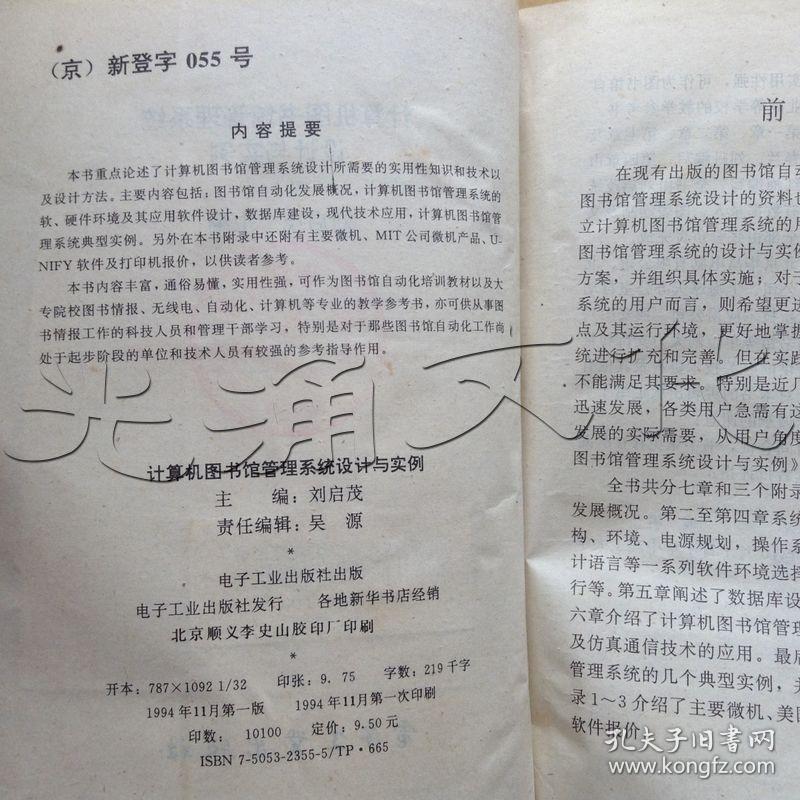 （京）新登字 055 号
内 容 提 要
本书重点论述了计算机图书馆管理系统设计所需要的实用性知识和技术以
及设计方法。主要内容包括：图书馆自动化发展概况，计算机图书馆管理系统的
软、硬件环境及其应用软件设计，数据库建设，现代技术应用，计算机图书馆管
理系统典型实例。另外在本书附录中还附有主要微机、MIT公司微机产品、U-
NIFY 软件及打印机报价，以供读者参考。
本书内容丰富，通俗易懂，实用性强，可作为图书馆自动化培训教材以及大
专院校图书情报、无线电、自动化、计算机等专业的教学参考书，亦可供从事图
书情报工作的科技人员和管理干部学习，特别是对于那些图书馆自动化工作尚
处于起步阶段的单位和技术人员有较强的参考指导作用。
计算机图书馆管理系统设计与实例
主 编：刘启茂
责任编辑：吴 源
*
电子工业出版社出版
电子工业出版社发行 各地新华书店经销
北京顺义李史山胶印厂印刷
*
开本：787×1092 1/32 印张：9.75 字数：219千字
1994年11月第一版 1994年11月第一次印刷
印数：10100 定价：9.50元
ISBN 7-5053-2355-5/TP·665
前
在现有出版的图书馆自动
图书馆管理系统设计的资料也
立计算机图书馆管理系统的用
图书馆管理系统的设计与实例
方案，并组织具体实施；对于
系统的用户而言，则希望更进
点及其运行环境，更好地掌握
统进行扩充和完善。但在实践
不能满足其要求。特别是近几
迅速发展，各类用户急需有这
发展的实际需要，从用户角度
图书馆管理系统设计与实例》
全书共分七章和三个附录
发展概况。第二至第四章系统
构、环境、电源规划，操作系
计语言等一系列软件环境选择
行等。第五章阐述了数据库设
六章介绍了计算机图书馆管理
及仿真通信技术的应用。最后
管理系统的几个典型实例，并
录1～3介绍了主要微机、美国
软件报价。
光涌文化
孔夫子旧书网
www.kongfz.com